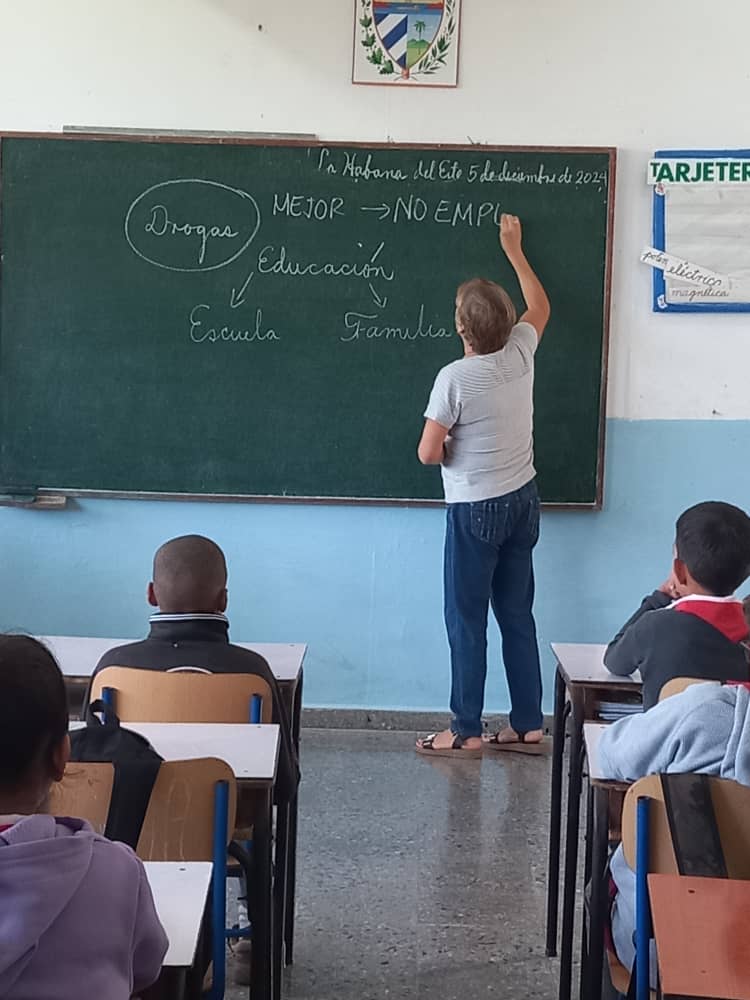 La Habana del Este 5 de diciembre de 2024
Drogas MEJOR → NO EMPL
Educación
Escuela Familia
TARJETER
poten
eléctrico
magnética